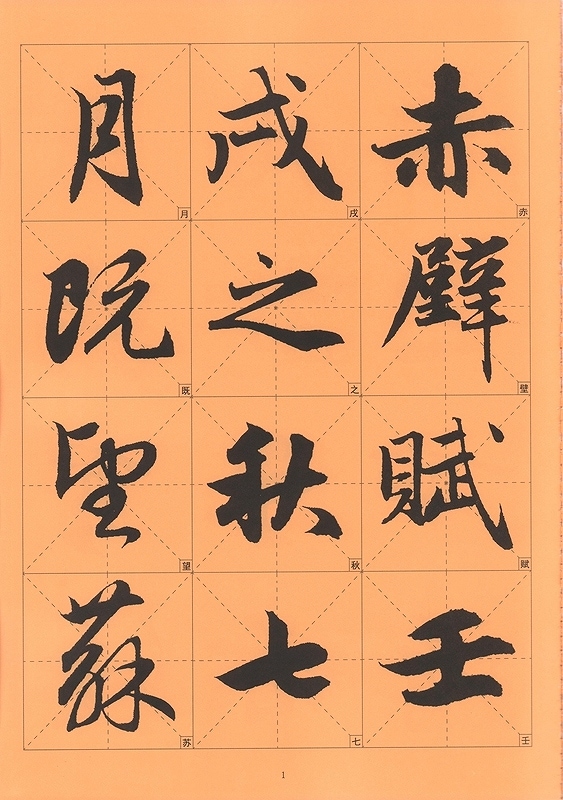 赤壁賦壬
戌之秋七
月既望蘇
赤
壁
赋
壬
戌
之
秋
七
月
既
望
苏
1